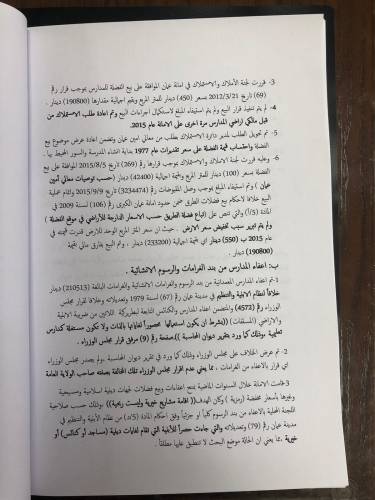 3- قررت لجنة الأملاك والاستملاك في امانة عمان الموافقة على بيع الفضلة للمدارس بموجب قرار رقم
(69) تاريخ 2012/3/21 بسعر (450) دينار للمتر المربع وبقيمة اجمالية مقدارها (190800) دينار .
4- لم يتم تنفيذ قرار البيع ولم يتم استيفاء المبلغ لاستكمال اجراءات البيع وتم اعادة طلب الاستملاك من
قبل مالكي اراضي المدارس مرة اخرى على الامانة عام 2015.
5- تم تحويل الطلب للمدير دائرة الاستملاك بطلب من معالي امين عمان وتضمن اعادة عرض موضوع بيع
الفضلة واحتساب قيمة الفضلة على سعر تقديرات عام 1977 بداية انشاء المدرسة والسور المحيط بها .
6- وعليه قررت لجنة الاملاك والاستملاك بموجب قرارها رقم (269) تاريخ 2015/8/5 الموافقة على بيع
الفضلة بسعر (100) دينار للمتر المربع وبالقيمة الاجمالية (42400) دينار (حسب توصيات معالي أمين
عمان) وتم استيفاء المبلغ بموجب وصل المقبوضات رقم (3234474) تاريخ 2015/9/9 واتمام عملية
البيع خلافا لاحكام بيع فضلات الطرق ضمن حدود امانة عمان الكبرى رقم (106) لسنة 2009 في
المادة (5/أ) والتي تنص على (تباع فضلة الطريق حسب الاسعار الدارجة للأراضي في موقع الفضلة)
ولم يتم تبرير سبب تخفيض سعر الارض . حيث ان سعر المتر المربع الواحد للارض قدرت قيمته في
عام 2015 ب (550) دينار اي بقيمة اجمالية (233200) دينار . وتم البيع بفارق مالي قيمة
(190800) دينار .
ب: اعفاء المدارس من بند الغرامات والرسوم الانشائية .
1-تم اعفاء المدارس العمدانية من بند الرسوم والغرامات الانشائية والغرامات البالغة (210513) دينار
خلافاً لنظام الابنية والتنظيم في مدينة عمان رقم (67) لسنة 1979 وتعديلاته وخلافا لقرار مجلس
الوزراء رقم (4572) والمتضمن اعفاء المدارس والكنائس التابعة لبطريركية اللاتين من ضريبة الابنية
والاراضي (المسقفات) ((بشرط ان يكون استعمالها محصوراً لغاياتها بالذات ولا تكون مستغلة كمدارس
تعليمية ,وذلك كما ورد بتقرير ديوان المحاسبة ))،صفحة رقم (9) مرفق قرار مجلس الوزراء .
2- تم عرض الخلاف على مجلس الوزراء وذلك كما ورد في تقرير ديوان المحاسبة ،ولم يصدر مجلس الوزراء
اي قرار بالاعفاء من الغرامات ، مما يعني عدم اقرار مجلس الوزراء تلك المخالفة بصفته صاحب الولاية العامة
3-قامت الامانة خلال السنوات الماضية بمنح اعفاءات وبيع فضلات لجهات دينية اسلامية ومسيحية
وغيرها بأسعار مخفضة (رمزية ) وكان الهدف((اقامة مشاريع خيرية وليست ربحية)) ،وذلك حسب صلاحية
اللجنة المحلية بالاعفاء من بند الرسوم كلياً او جزئياً وفق احكام المادة (5/د) من نظام الأبنية والتنظيم في
مدينة عمان رقم (79) وتعديلاته والتي جاءت حصراً للأبنية التي تقام لغايات دينية (مساجد أو كنائس) أو
خيرية ،مما يعني ان الحالة موضع البحث لا تنطبق عليها مطلقاً .